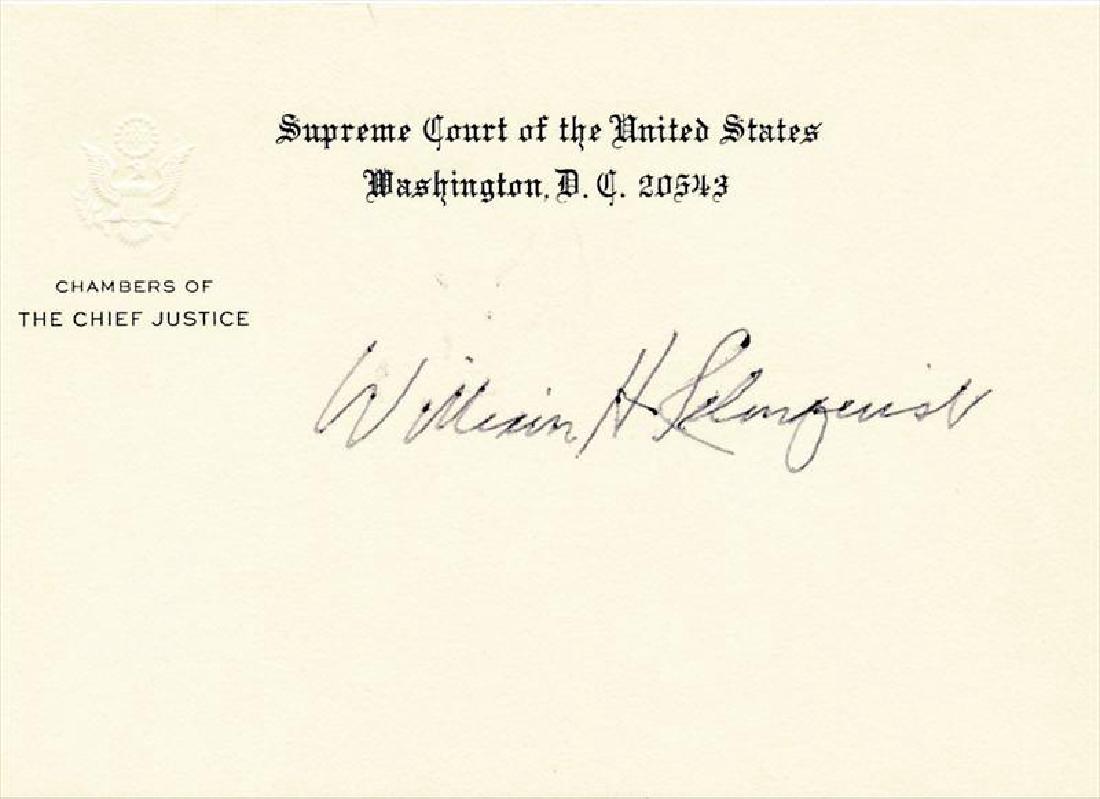 Supreme Court of the United States
Washington, D. C. 20543
CHAMBERS OF
THE CHIEF JUSTICE
William H Rehnquist